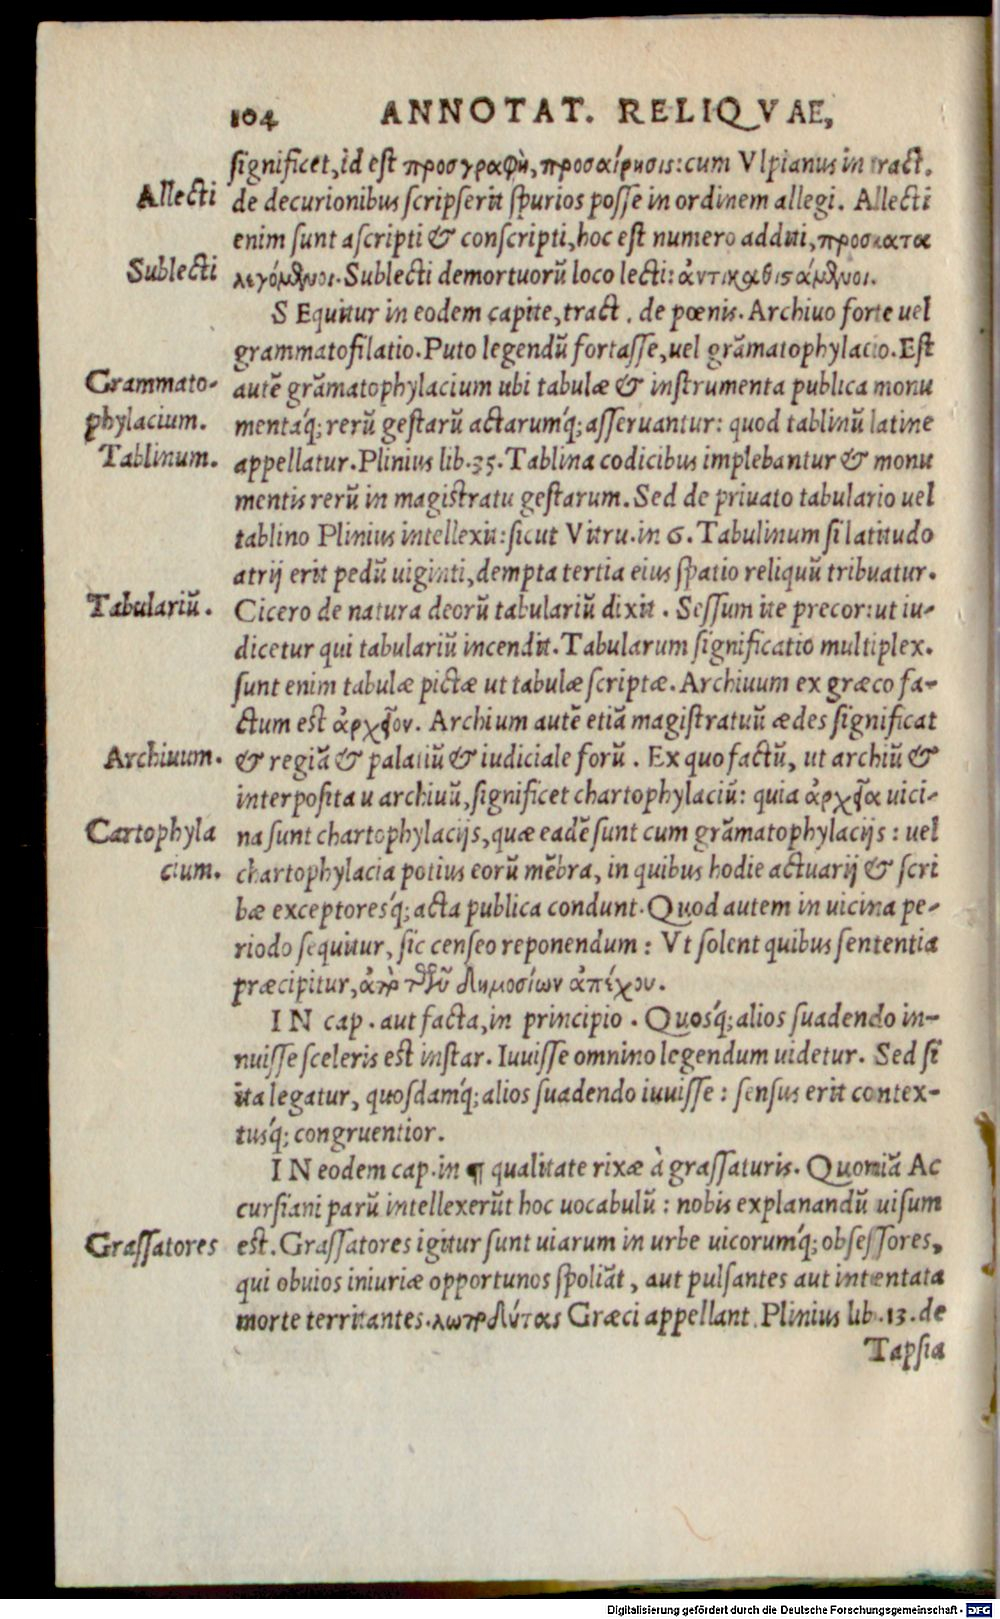 104 ANNOTAT. RELIQVAE,
significet, id est προσγραφὴ, προσαίρησις: cum Vlpianus in tract.
Allecti de decurionibus scripserit spurios posse in ordinem allegi. Allecti
enim sunt ascripti & conscripti, hoc est numero additi, προσκατα
Sublecti λεγόμενοι. Sublecti demortuorū loco lecti: ἀντικαθιστάμενοι.
SEquitur in eodem capite, tract. de pœnis. Archiuo forte uel
grammatofilatio. Puto legendū fortasse, uel grāmatophylacio. Est
Grammato- autē grāmatophylacium ubi tabulæ & instrumenta publica monu
phylacium. mentaq́; rerū gestarū actarumq́; asseruantur: quod tablinū latine
Tablinum. appellatur. Plinius lib. 35. Tablina codicibus implebantur & monu
mentis rerū in magistratu gestarum. Sed de priuato tabulario uel
tablino Plinius intellexit: sicut Vitru. in 6. Tabulinum si latitudo
atrij erit pedū uiginti, dempta tertia eius spatio reliquū tribuatur.
Tabulariū. Cicero de natura deorū tabulariū dixit. Sessum ite precor: ut iu-
dicetur qui tabulariū incendit. Tabularum significatio multiplex.
sunt enim tabulæ pictæ ut tabulæ scriptæ. Archiuum ex græco fa-
ctum est ἀρχεῖον. Archium autē etiā magistratuū ædes significat
Archiuum. & regiā & palatiū & iudiciale forū. Ex quo factū, ut archiū &
interposita u archiuū, significet chartophylaciū: quia ἀρχεῖα uici-
Cartophyla na sunt chartophylacijs, quæ eadē sunt cum grāmatophylacijs: uel
cium. chartophylacia potius eorū mēbra, in quibus hodie actuarij & scri
bæ exceptoresq́; acta publica condunt. Quod autem in uicina pe-
riodo sequitur, sic censeo reponendum: Vt solent quibus sententia
præcipitur, ἀπὸ τῶν δημοσίων ἀπέχου.
IN cap. aut facta, in principio. Quosq́; alios suadendo in-
nuisse sceleris est instar. Iuuisse omnino legendum uidetur. Sed si
ita legatur, quosdamq́; alios suadendo iuuisse: sensus erit contex-
tusq́; congruentior.
IN eodem cap. in ¶ qualitate rixæ à grassaturis. Quoniā Ac
cursiani parū intellexerūt hoc uocabulū: nobis explanandū uisum
Grassatores est. Grassatores igitur sunt uiarum in urbe uicorumq́; obsessores,
qui obuios iniuriæ opportunos spoliāt, aut pulsantes aut intentata
morte territantes. λωποδύτας Græci appellant. Plinius lib. 13. de
Tapsia
Digitalisierung gefördert durch die Deutsche Forschungsgemeinschaft - DFG